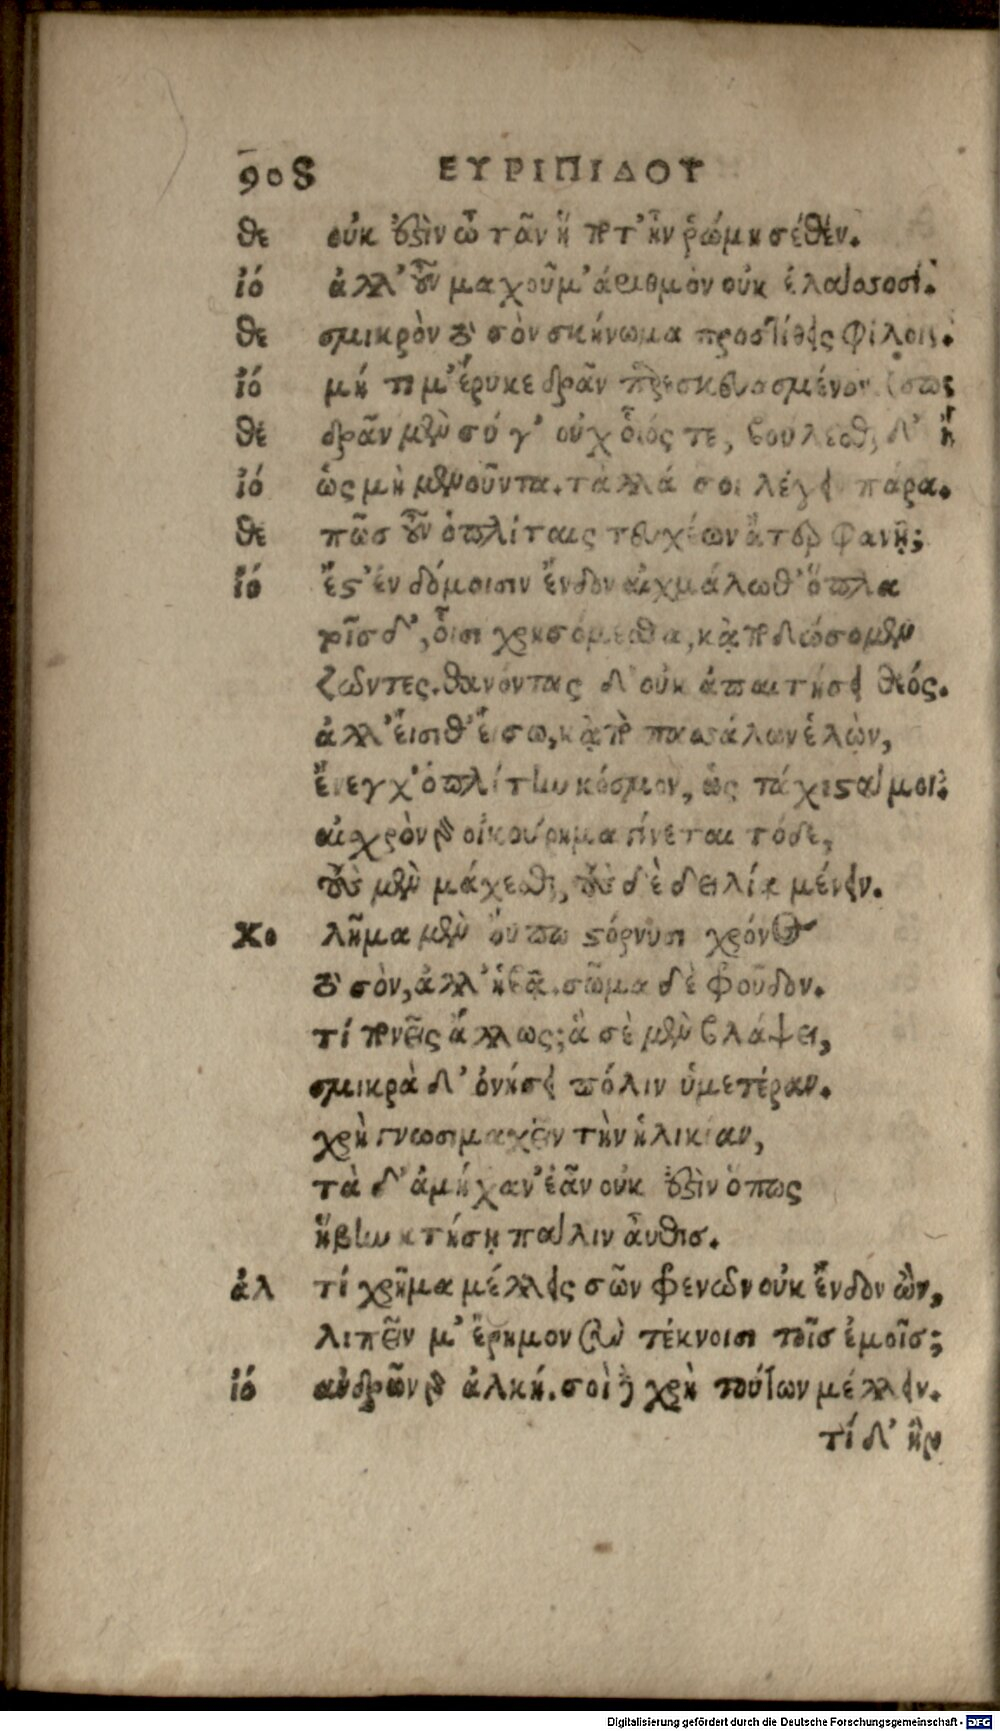 908 ΕΥΡΙΠΙΔΟΥ
θε οὐκ ἔστιν ὦ τᾶν ἥ ποτ' ἦν ῥώμη σέθεν.
ἰό ἀλλ' οὖν μαχοῦμ' ἀριθμὸν οὐκ ἐλάσσοσι.
θε σμικρὸν τὸ σὸν σήκωμα προστίθης φίλοις.
ἰό μή τι μ' ἔρυκε δρᾶν παρεσκευασμένον.
θε δρᾶν μὲν σύ γ' οὐχ οἷός τε, βούλεσθαι δ' ἴσως
ἰό ὡς μὴ μενοῦντα. τἀλλά σοι λέγειν πάρα.
θε πῶσ οὖν ὁπλίταις τευχέων ἄτερ φανῇ;
ἰό ἔστ' ἐν δόμοισιν ἔνδον αἰχμάλωθ' ὅπλα
τοῖσδ', οἷσι χρησόμεσθα, κᾀποδώσομεν
ζῶντες. θανόντας δ' οὐκ ἀπαιτήσει θεός.
ἀλλ' εἴσιθ' εἴσω, κᾀπὸ πασσάλων ἑλὼν,
ἔνεγχ' ὁπλίτην κόσμον, ὡς τάχιστά μοι.
αἰσχρὸν γὰρ οἰκούρημα γίνεται τόδε,
τοὺς μὲν μάχεσθαι, τοὺς δὲ δειλίᾳ μένειν.
χο λῆμα μὲν οὔπω στόρνυσι χρόνος
τὸ σὸν, ἀλλ' ἡβᾷ. σῶμα δὲ φροῦδον.
τί πονεῖς ἄλλως; ἃ σὲ μὲν βλάψει,
σμικρὰ δ' ὀνήσει πόλιν ὑμετέραν.
χρὴ γνωσιμαχεῖν τὴν ἡλικίαν,
τὰ δ' ἀμήχαν' ἐᾶν οὐκ ἔστιν ὅπως
ἥβην κτήσῃ πάλιν αὖθισ.
ἀλ τί χρῆμα μέλλεις σῶν φρενῶν οὐκ ἔνδον ὢν,
λιπεῖν μ' ἔρημον σὺν τέκνοισι τοῖσ ἐμοῖσ;
ἰό ἀνδρῶν γὰρ ἀλκή. σοὶ δὲ χρὴ τούτων μέλλειν.
τί δ' ἢν